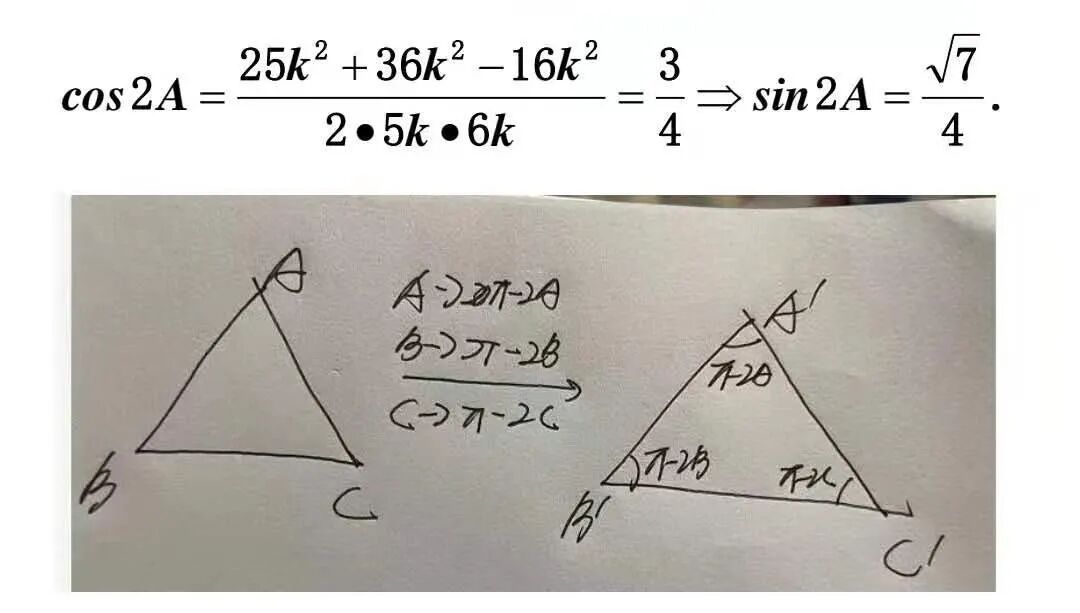 cos2A = (25k² + 36k² − 16k²) / (2•5k•6k) = 3/4 ⇒ sin2A = √7/4.
A
A→π-2A
B→π-2B
C→π-2C
B
C
A'
π-2A
π-2B
π-2C
B'
C'